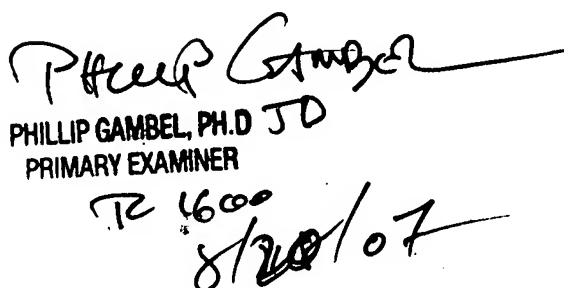 PHILLIP GAMBEL
PHILLIP GAMBEL, PH.D JD
PRIMARY EXAMINER
TC 1600
8/20/07